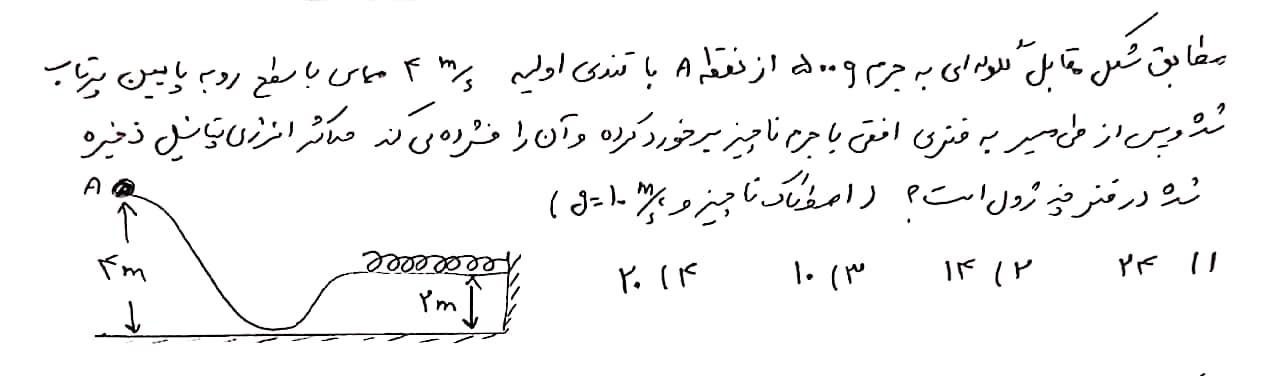 مطابق شکل مقابل گلوله‌ای به جرم ۵۰۰g از نقطه A با تندی اولیه ۴ m/s مماس با سطح رو به پایین پرتاب
شده و پس از طی مسیر به فنری افقی با جرم ناچیز برخورد کرده و آن را فشرده می‌کند حداکثر انرژی پتانسیل ذخیره
شده در فنر چند ژول است؟ (اصطکاک ناچیز و g=۱۰ m/s²)
۱) ۲۴ ۲) ۱۴ ۳) ۱۰ ۴) ۲۰
A
۴m
۲m